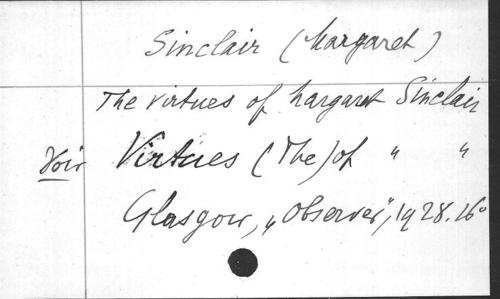 Sinclair (Margaret)
The virtues of Margaret Sinclair
Voir Virtues (The) of " "
Glasgow, „Observer", 1928. 16°